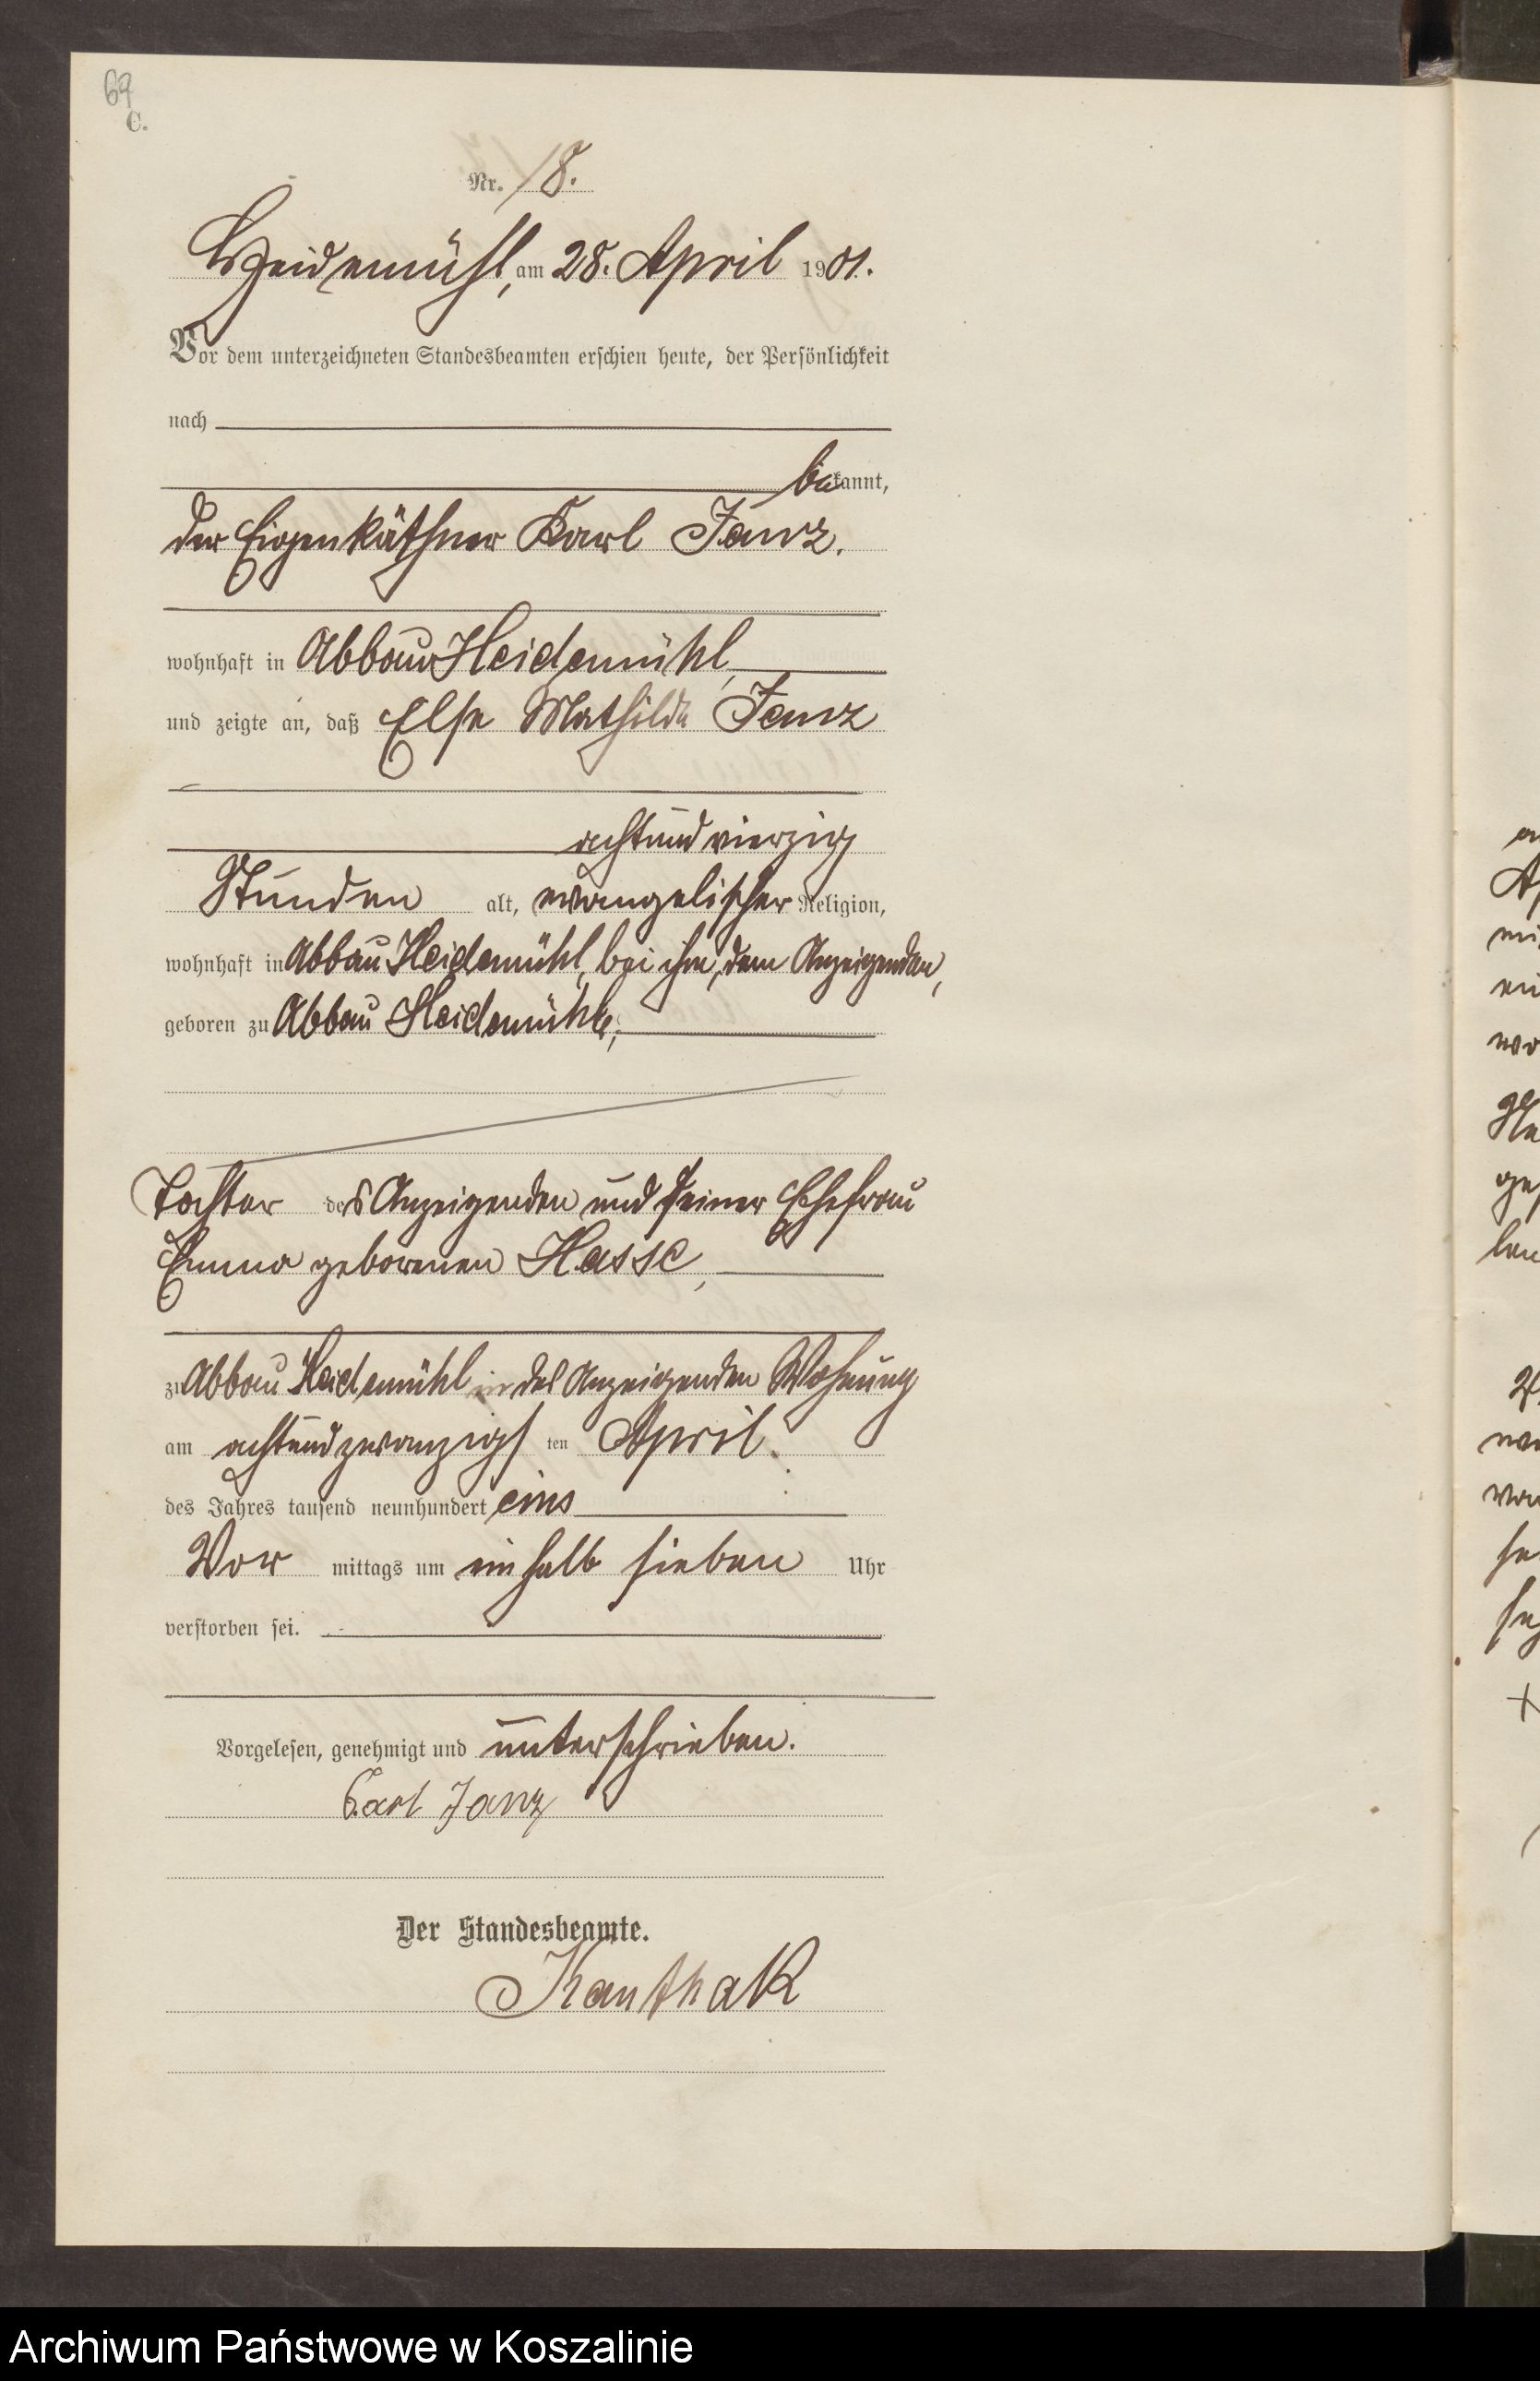 69
C.
Nr. 18.
Heidemühl, am 28. April 1901.
Vor dem unterzeichneten Standesbeamten erschien heute, der Persönlichkeit
nach
bekannt,
der Eigenkäthner Karl Janz.
wohnhaft in Abbau Heidemühl,
und zeigte an, daß Else Mathilde Janz
achtundvierzig
Stunden alt, evangelischer Religion,
wohnhaft in Abbau Heidemühl, bei ihm, dem Anzeigenden,
geboren zu Abbau Heidemühl,
Tochter des Anzeigenden und seiner Ehefrau
Emma geborenen Hasse,
zu Abbau Heidemühl in des Anzeigenden Wohnung
am achtundzwanzigsten April
des Jahres tausend neunhundert eins
Vormittags um ein halb sieben Uhr
verstorben sei.
Vorgelesen, genehmigt und unterschrieben.
Carl Janz
Der Standesbeamte.
Kanthak
Archiwum Państwowe w Koszalinie